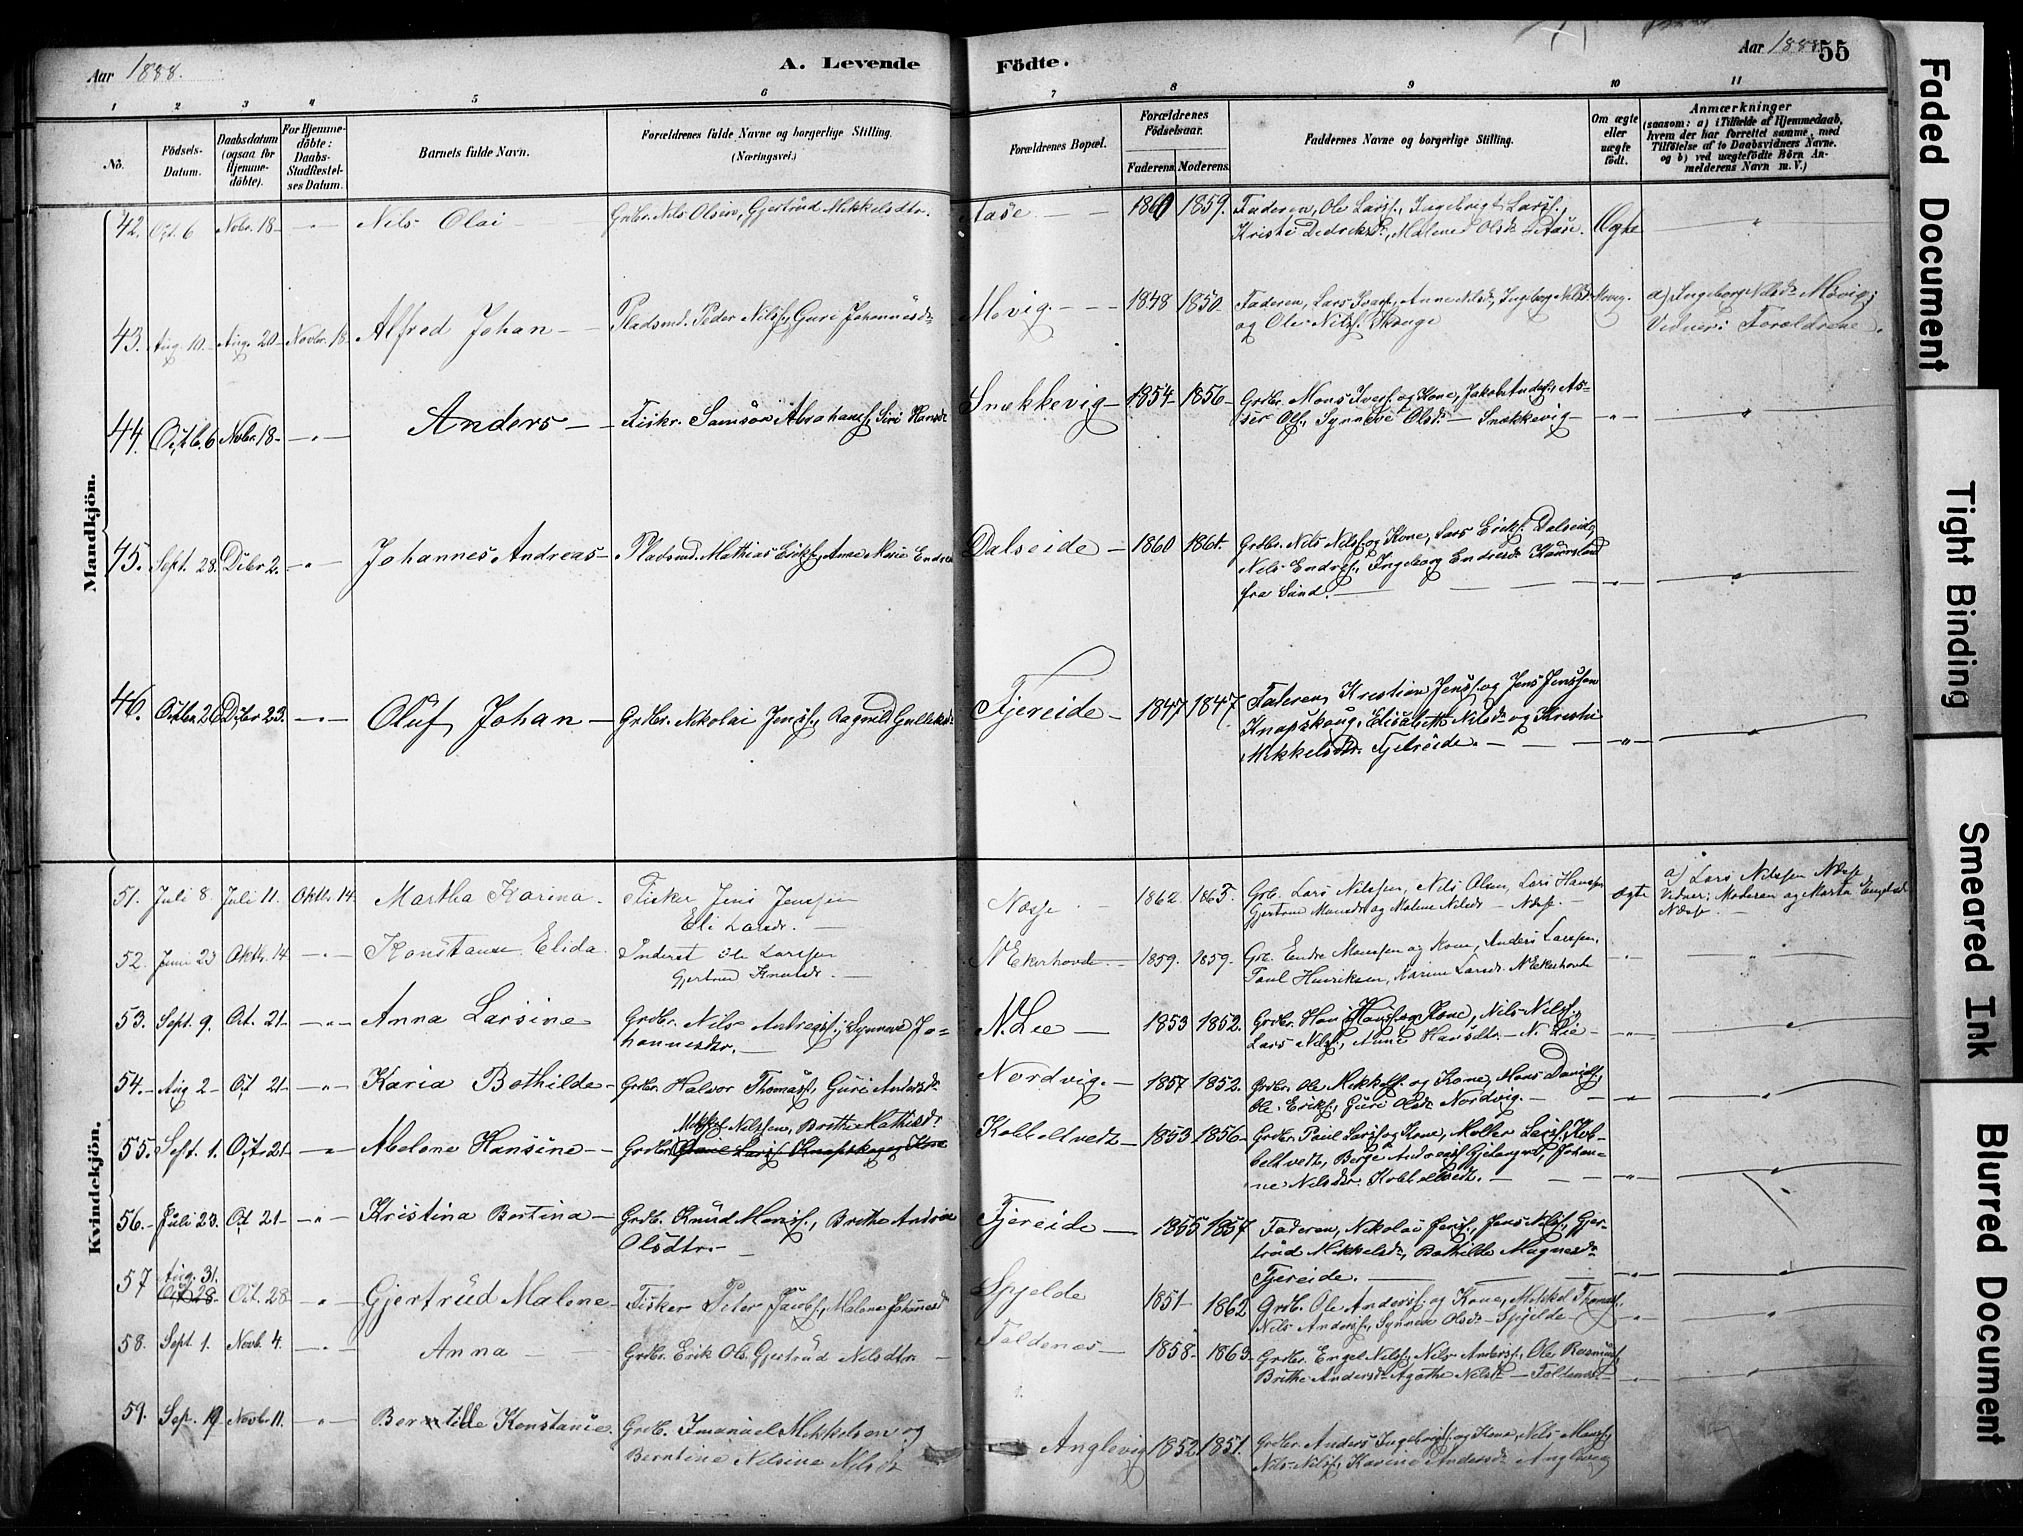 Aar 1888.
A. Levende
Födte.
Aar 1888.
55
1 2 3 4 5 6 7 8 9 10 11
No.
Födsels-
Datum.
Daabsdatum
(ogsaa for
Hjemme-
döbte).
For Hjemme-
döbte:
Daabs-
Stadfæstel-
ses Datum.
Barnets fulde Navn.
Forældrenes fulde Navne og borgerlige Stilling.
(Næringsvei.)
Forældrenes Bopæl.
Forældrenes
Födselsaar.
Faderens. Moderens.
Faddernes Navne og borgerlige Stilling.
Om ægte
eller
uægte
födt.
Anmærkninger
(saasom: a) i Tilfælde af Hjemmedaab,
hvem der har forrettet samme, med
Tilföielse af to Daabsvidners Navne,
og b) ved uægtefödte Börn An-
melderens Navn m. V.)
Mandkjön.
42. Oct. 6 Novbr. 18 - " - Nils Olai - Grdbr. Nils Olsen, Gjertrud Mikkelsdtr. Aase - 1860 1859. Faderen, Ole Larss., Ingebrigt Larss.,
Kristi Dedriksdr., Malene Olsdr. Aase. Ægte "
43. Aug. 10 - Aug. 20 - Novbr. 18 - Alfred Johan - Pladsmd. Peder Nilss., Guri Johannesdr. Movig. - 1848 1850 Faderen, Lars Ivars., Anne Nilsdr., Ingeborg Nilsdr. Movig.
og Ole Nilss. Skouge
a) Ingeborg Nilsdr. Movig;
Vidner: Forældrene.
44. Octb. 6 Novbr. 18 - " - Anders - Fisker. Samson Abrahams., Siri Hansdr. Snækkevig - 1854 - 1856 - Grdbr. Mons Ivers. og Kone, Jakob Anders., As-
ser Ols., Synneve Olsdr. - Snækkevig - " - "
45. Sept. 28. Decbr 2. - " - Johannes Andreas - Pladsmd. Mathias Eriks., Anne Marie Endresdr. Dalseide - 1860 1861. Grdbr. Nils Nilss. og Kone, Lars Eriks. Dalseide,
Nils Endres., Ingeborg Endresdr.
fra Sund. - " - "
46. Octbr. 26 Decbr 23. - " - Oluf Johan - Grdbr. Nikolai Jenss., Aagaard Gulleksdr. Fjereide - 1847 1847. Faderen, Kristian Jenss. og Jens Jenssen
Knapskoug, Elisabeth Nilsdr. og Kristi
Mikkelsdtr. Fjelreide. - " - "
Kvindekjön.
51. Juli 8. Juli 11. Oktbr. 14. Martha Karina. Fisker Jens Jenssen
Eli Larsdr.
Næsse 1862. 1865. Grb. Lars Nilssen, Nils Olsen, Lars Hanssen
Gjertrine Monsdr og Malene Nilsdr - Næsse. Ægte
a) Lars Nilssen Næsse
Vidner: Moderen og Marta
Næsse.
52. Juni 23 Oktbr. 14. - " - Konstanse Elida. Inderst Ole Larssen
Gjertrud Knudsdr.
N Ekerhovde - 1859. 1859. Grb. Endre Monssen og Kone, Anders Larssen,
Poul Henriksen, Karine Larsdr. N Ekerhovde " "
53. Sept. 9. Oct. 21 - " - Anna Larsine Grdbr. Nils Andreass., Synneve Jo-
hannesdtr. -
N. Lee - 1853 1852. Grdbr. Hans Hanss. og Kone, Nils Nilss.,
Lars Nilss., Anne Hansdtr. - N. Lie - " "
54. - Aug 2 - Oct 21 - " - Karia Bothilde - Grdbr. Halvor Thomass., Guri Andersdr. Nordvig. - 1857 1852. Grdbr. Ole Mikkels. og Kone, Mons Daniels.,
Ole Eriks., Guri Olsdr Nordvig. - " - "
55. Sept. 1. Oct. 21 - " - Malene Hansine - Mikkel Nilssen, Brithe Mathisdr
Grdbr. Lars Knapskog og Kone
Kobbeltvedt - 1853 1856 - Grdbr. Paul Larss. og Kone, Møller Larss., Kob-
beltvedt, Berge Andreass., Johan-
ne Nilsdtr. Kobbeltvedt. - " - "
56. - Juli 23. Oct 21 - " - Kristina Bertina - Grdb. Knud Monss., Brithe Andrea
Olsdtr. -
Fjereide - 1855 1857 Faderen, Nikolai Jenss., Jens Nilss., Gjer-
trud Mikkelsdr., Bothilde Magnesdr.
Fjereide. - " - "
57 Aug. 31.
Oct. 28 Oct. 28 - " - Gjertrud Malene - Fisker Peter Jacobs., Malene Johannesdr Spjelde 1851 - 1862 Grdb. Ole Anderss. og Kone, Mikkel Thomass.
Nils Anderss., Synneva Olsdr - Spjelde - " - "
58. Sept. 1. Novb. 4. - " - Anna - Grdbr. Erik Ols. Gjertrud Nilsdtr. - Foldenæs - 1858 - 1863 - Grdbr. Engel Nilss., Nils Anderss., Ole Rasmuss.,
Brithe Andersdr, Agathe Nilsdr - Foldenæs - " - "
59. Sep. 19 Novbr 11. - " - Berntille Konstanse. Grdb. Imanuel Mikkelsen og
Berntine Nilsine Nilsdr.
Anglevig 1852 1851. Grdbr. Anders Ingebrigts. og Kone, Nils Monss.,
Nils Nilss., Karine Andersdr Anglevig
Faded Document
Tight Binding
Smeared Ink
Blurred Document